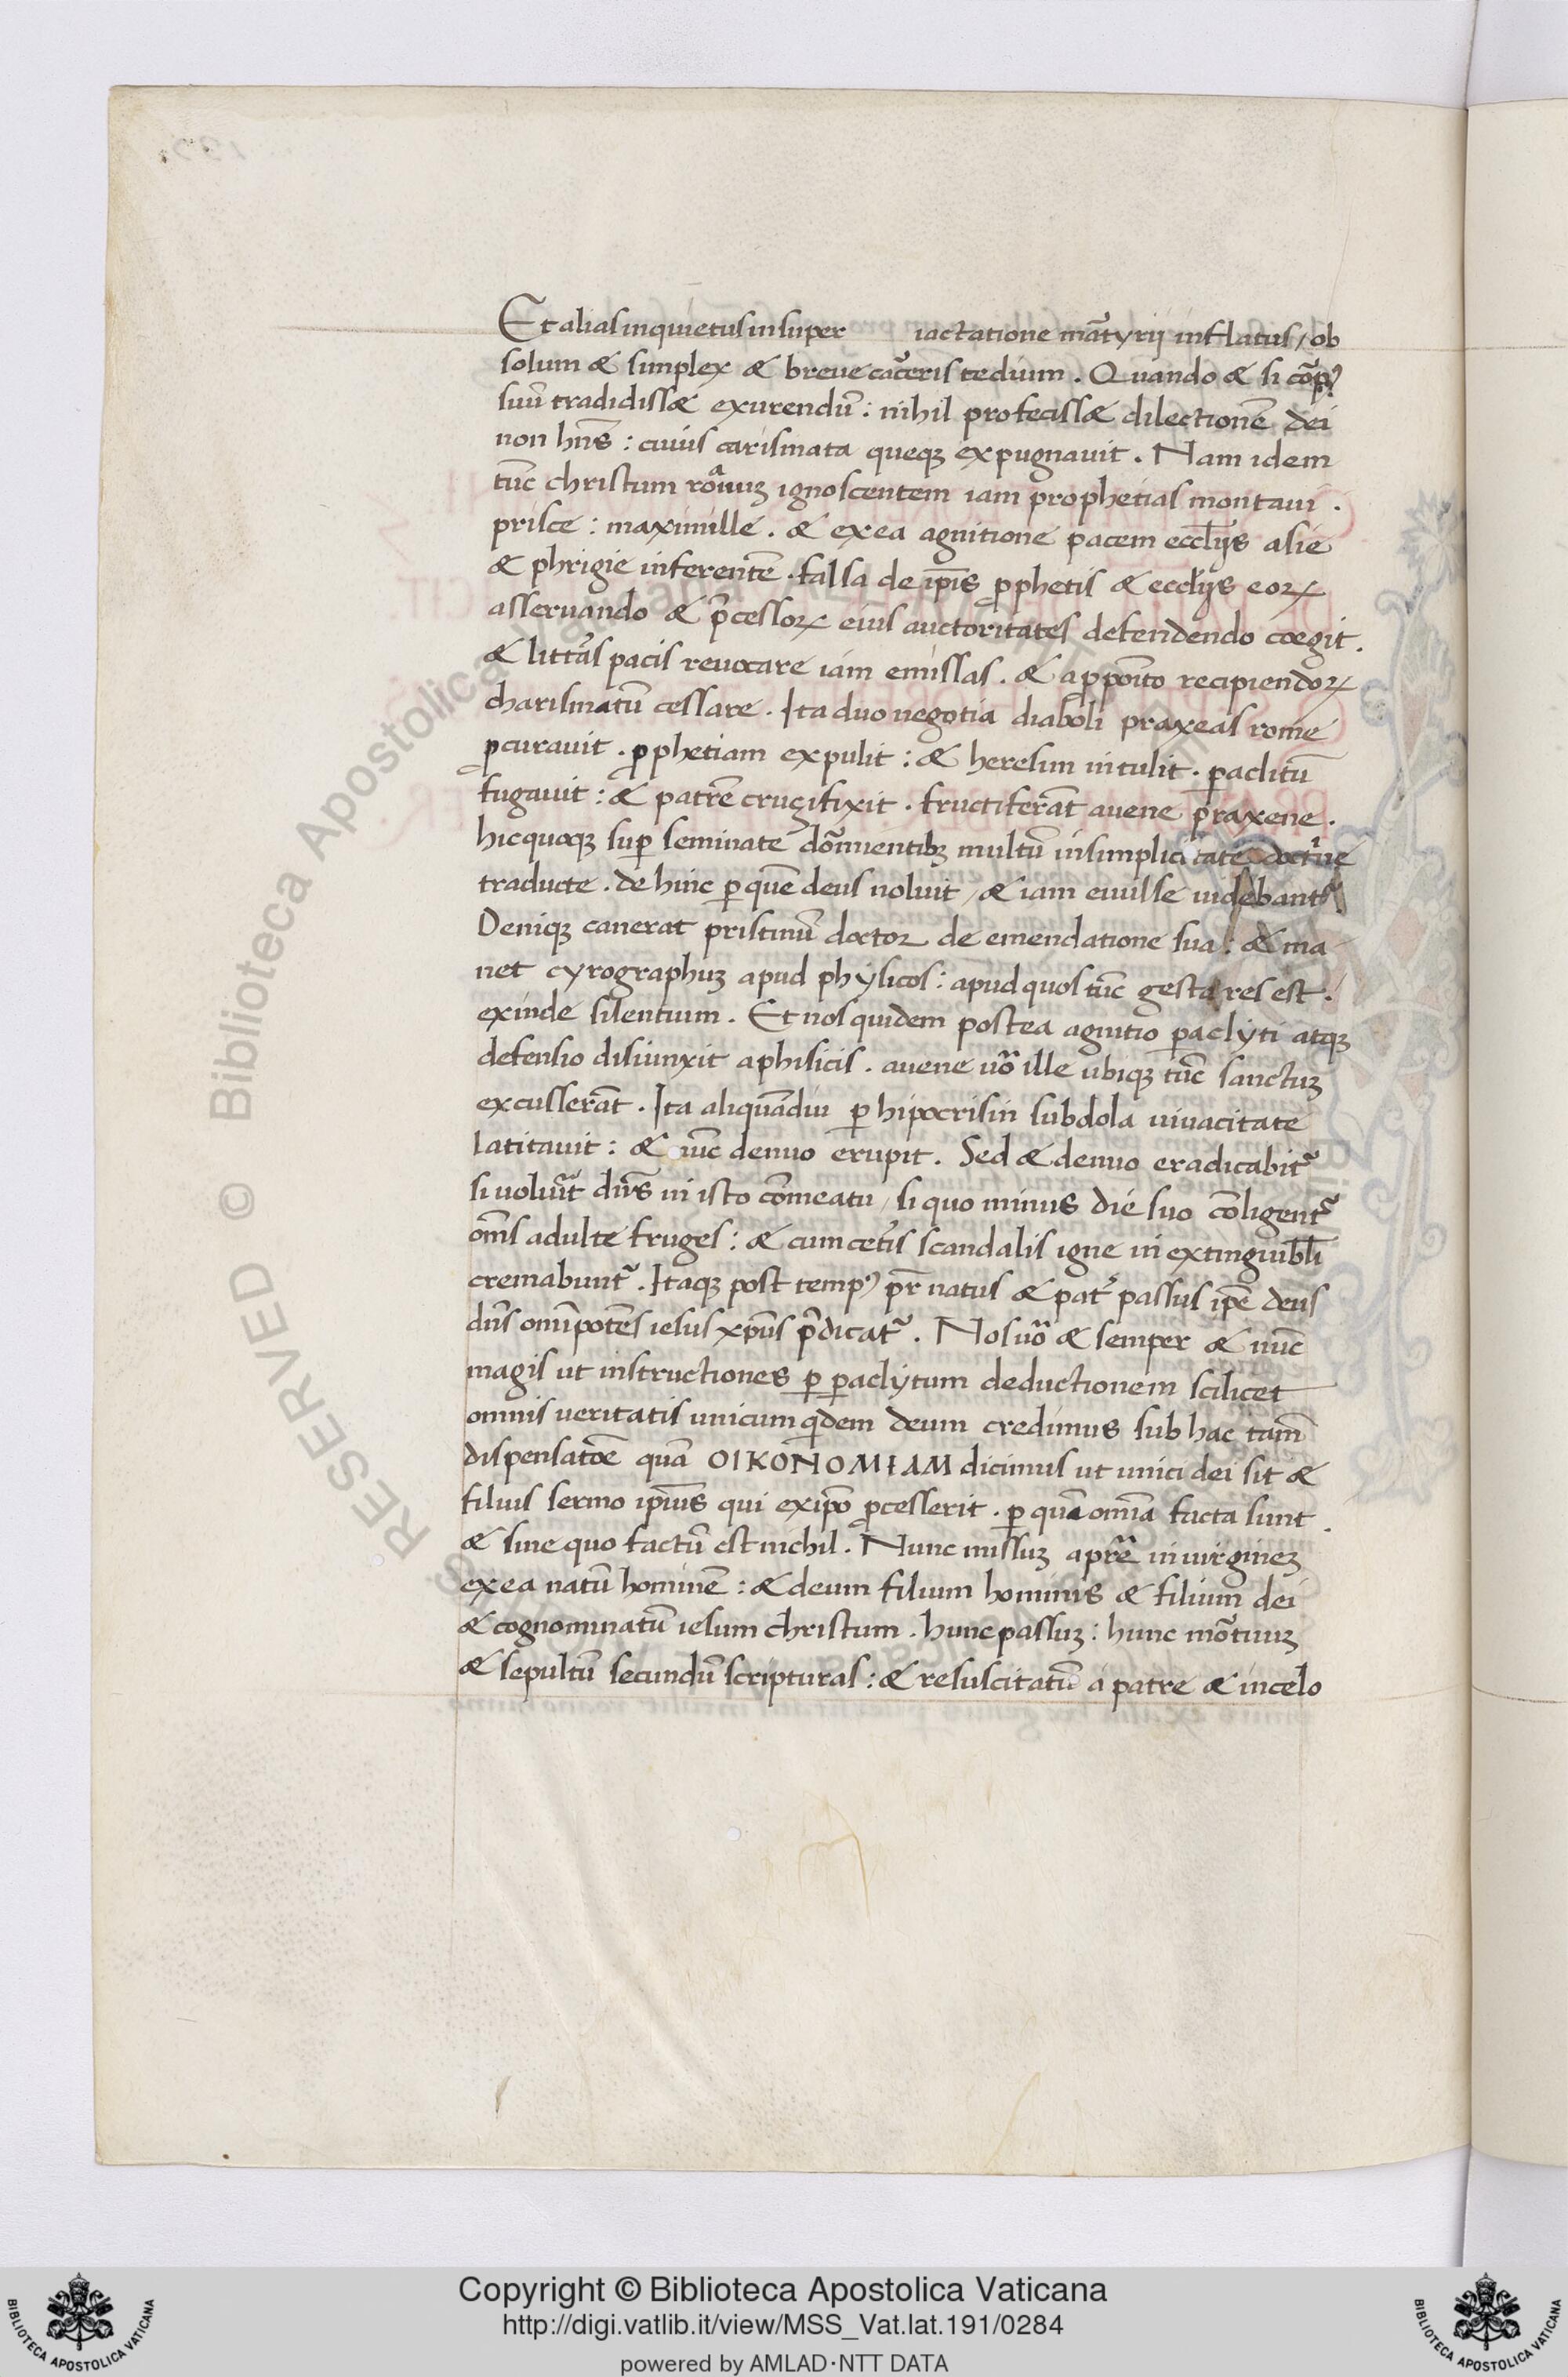 Et alias inquietus insuper iactatione mãtyrij inflatus / ob
solum & simplex & breue cãceris tedium . Quando & si cõpꝰ
suũ tradidiss& exurendũ : nihil profeciss& dilectionẽ dei
non hñs : cuius carismata queqꝫ expugnauit . Nam idem
tũc christum romauꝫ ignoscentem iam prophetias montaui .
prisce : maximille . & exea agnitione pacem eccl̃ijs asie
& phrigie inferentẽ . falsa de ip̃is ꝓphetis & eccl̃ijs eoꝝ
asseruando & p̃cessoꝝ eius auctoritates defendendo coegit .
& litt̃as pacis reuocare iam emissas . & apꝓpoĩto recipiendoꝝ
charismatũ cessare . Ita duo negotia diaboli praxeas rome
ꝓcurauit . ꝓphetiam expulit : & heresim intulit . ꝑaclitũ
fugauit : & patrẽ crucifixit . fructiferãt auene praxene .
hicquoqꝫ suꝑ seminate dõmientibꝫ multũ insimplicitate doct̃ine
traducte . dehinc ꝑ quẽ deus uoluit / & iam euulse uidebant᷑
Deniqꝫ cauerat pristinũ doctor de emendatione sua : & ma
net cyrographuꝫ apud phỹsicos : apud quos tũc gesta res est .
exinde silentium . Et nos quidem postea agnitio ꝑaclyti atqꝫ
defensio disiunxit aphisicis . auene uõ ille ubiqꝫ tũc sanctuꝫ
excusserãt . Ita aliquãdiu ꝑ hipocrisin subdola uiuacitate
latitauit : & nũc denuo erupit . Sed & denuo eradicabit᷑
si uoluĩt dñs in isto cõmeatu / si quo minus die suo cõligent᷑
om̃s adulte fruges : & cum cet̃is scandalis igne in extinguibl̃i
cremabunt᷑ . Itaqꝫ post tempꝰ pr̃ natus & pat᷑ passus ip̃e deus
dñs om̃ipotẽs iesus xp̃us p̃dicat᷑ . Nos uõ & semper & nũc
magis ut instructiones ꝑ ꝑaclytum deductionem scilicet
omnis ueritatis unicum qĩdem deum credimus sub hac tam̃
dispensatõe quã OIKONOMIAM dicimus ut unici dei sit &
filius sermo ip̃ius qui exip̃o ꝓcesserit . ꝑ quẽ om̃ia facta sunt .
& sine quo factũ est nichil . Nunc missuꝫ apr̃e in uirgineꝫ
exea natũ hominẽ : & deum filium hominis & filium dei
& cognominatũ iesum christum . hunc passuꝫ : hunc mõtuuꝫ
& sepultũ secundũ scripturas : & resuscitatũ a patre & incelo
© Biblioteca Apostolica Vaticana
RESERVED
Copyright © Biblioteca Apostolica Vaticana
http://digi.vatlib.it/view/MSS_Vat.lat.191/0284
powered by AMLAD·NTT DATA
BIBLIOTECA APOSTOLICA VATICANA
BIBLIOTECA APOSTOLICA VATICANA